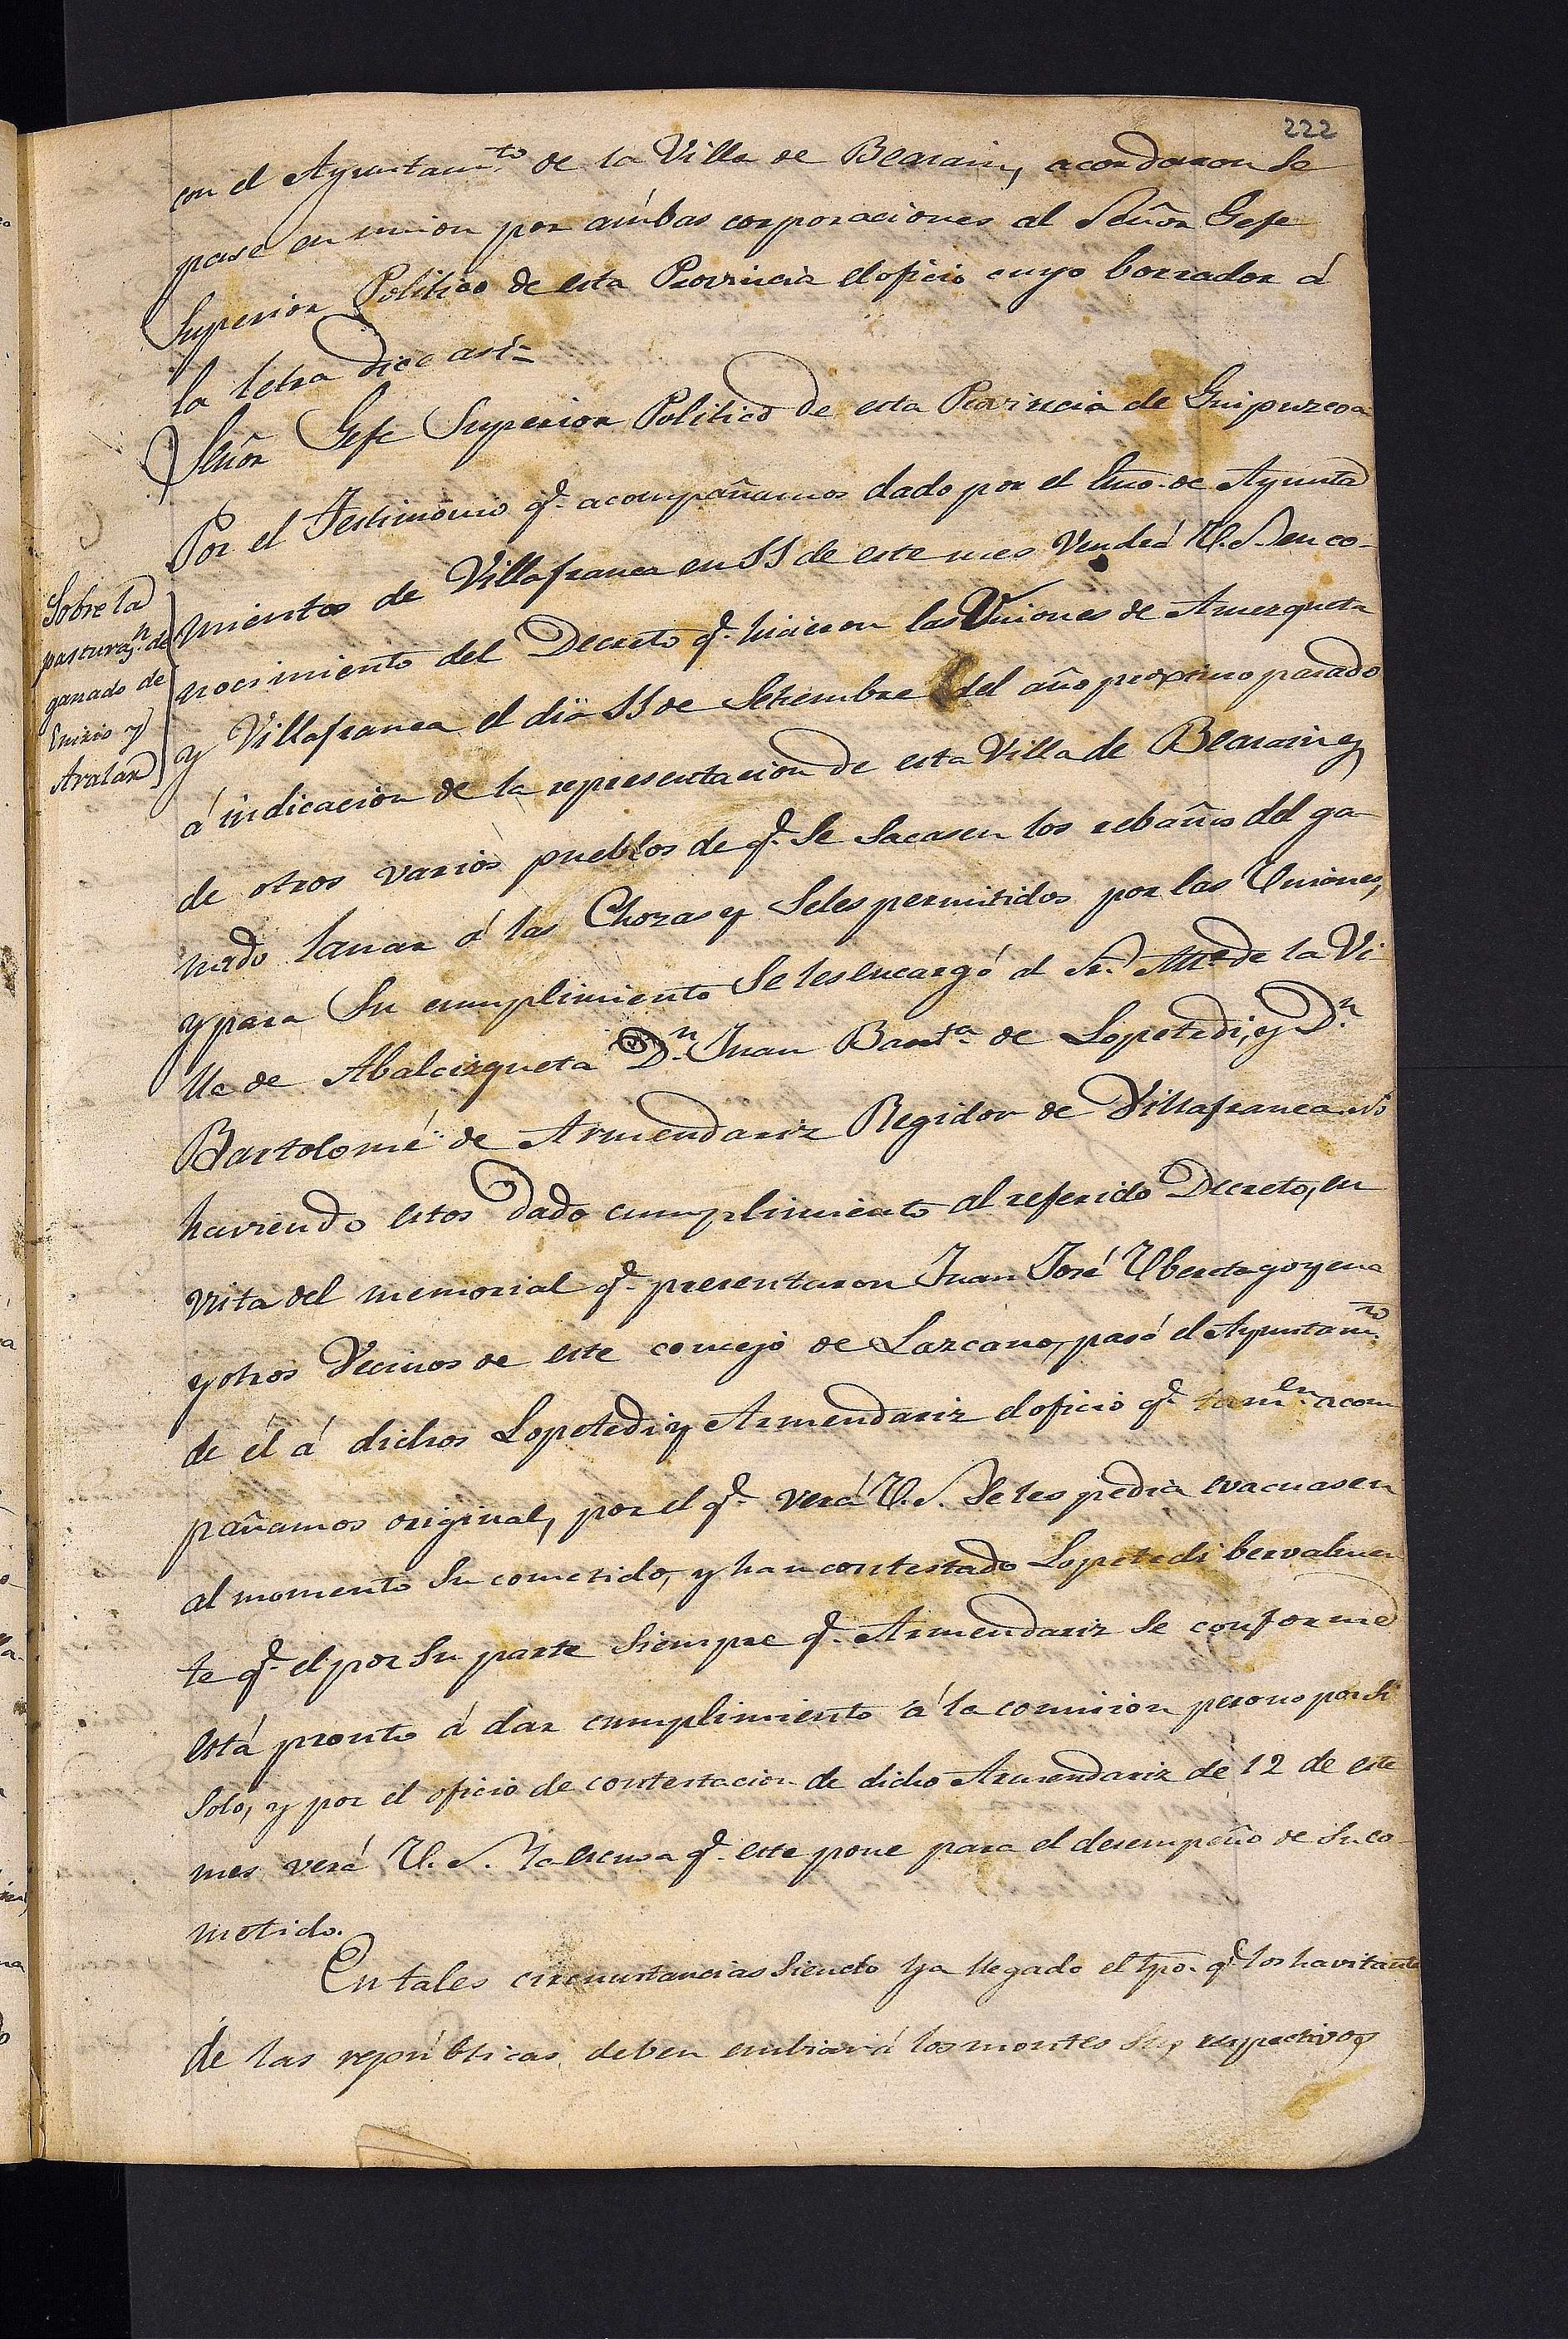 222
con el Ayuntam.to de la Villa de Beasain, acordaron se
pase en union por ámbas corporaciones al Señor Gefe
Superior Politico de esta Provincia el oficio cuyo borrador á
la letra dice así =
Señor Gefe Superior Politico de esta Provincia de Guipuzcoa
Por el Testimonio q.e acompañamos dado por el Esno. de Ayunta
miento de Villafranca en 11 de este mes Vendrá V. S. en co-
nocimiento del Decreto q.e hicieron las Uniones de Amezqueta
y Villafranca el día 11 de Setiembre del año proximo pasado
á indicacion de la representacion de esta Villa de Beasain y
de otros varios pueblos de q.e se sacasen los rebaños del ga-
nado lanar á las Chozas y Seles permitidos por las Uniones,
y para su cumplimiento se les encargó al Sr. Alc.e de la Vi-
lla de Abalcizqueta D.n Juan Baut.a de Lopetedi, y D.n
Bartolomé de Armendariz Regidor de Villafranca no
haviendo estos dado cumplimiento al referido Decreto, en
vista del memorial q.e presentaron Juan José Yberetagoyena
y otros Vecinos de este concejo de Lazcano, pasó el Ayuntam.to
de él á dichos Lopetedi y Armendariz el oficio q.e tam.en acom
pañamos original, por el q.e verá V. S. se les pedia evacuasen
al momento su cometido, y han contestado Lopetedi bervalmen
te q.e el por su parte siempre q.e Armendariz se conforme
está pronto á dar cumplimiento á la comision pero no por si
solo, y por el oficio de contestacion de dicho Armendariz de 12 de este
mes verá V. S. la escusa q.e este pone para el desempeño de su co-
metido.
En tales circunstancias siendo ya llegado el tpo. q.e los havitantes
de las repúblicas deben embiar á los montes sus respectivos
Sobre la
pasturaz.n de
ganado de
Enirio y
Aralar